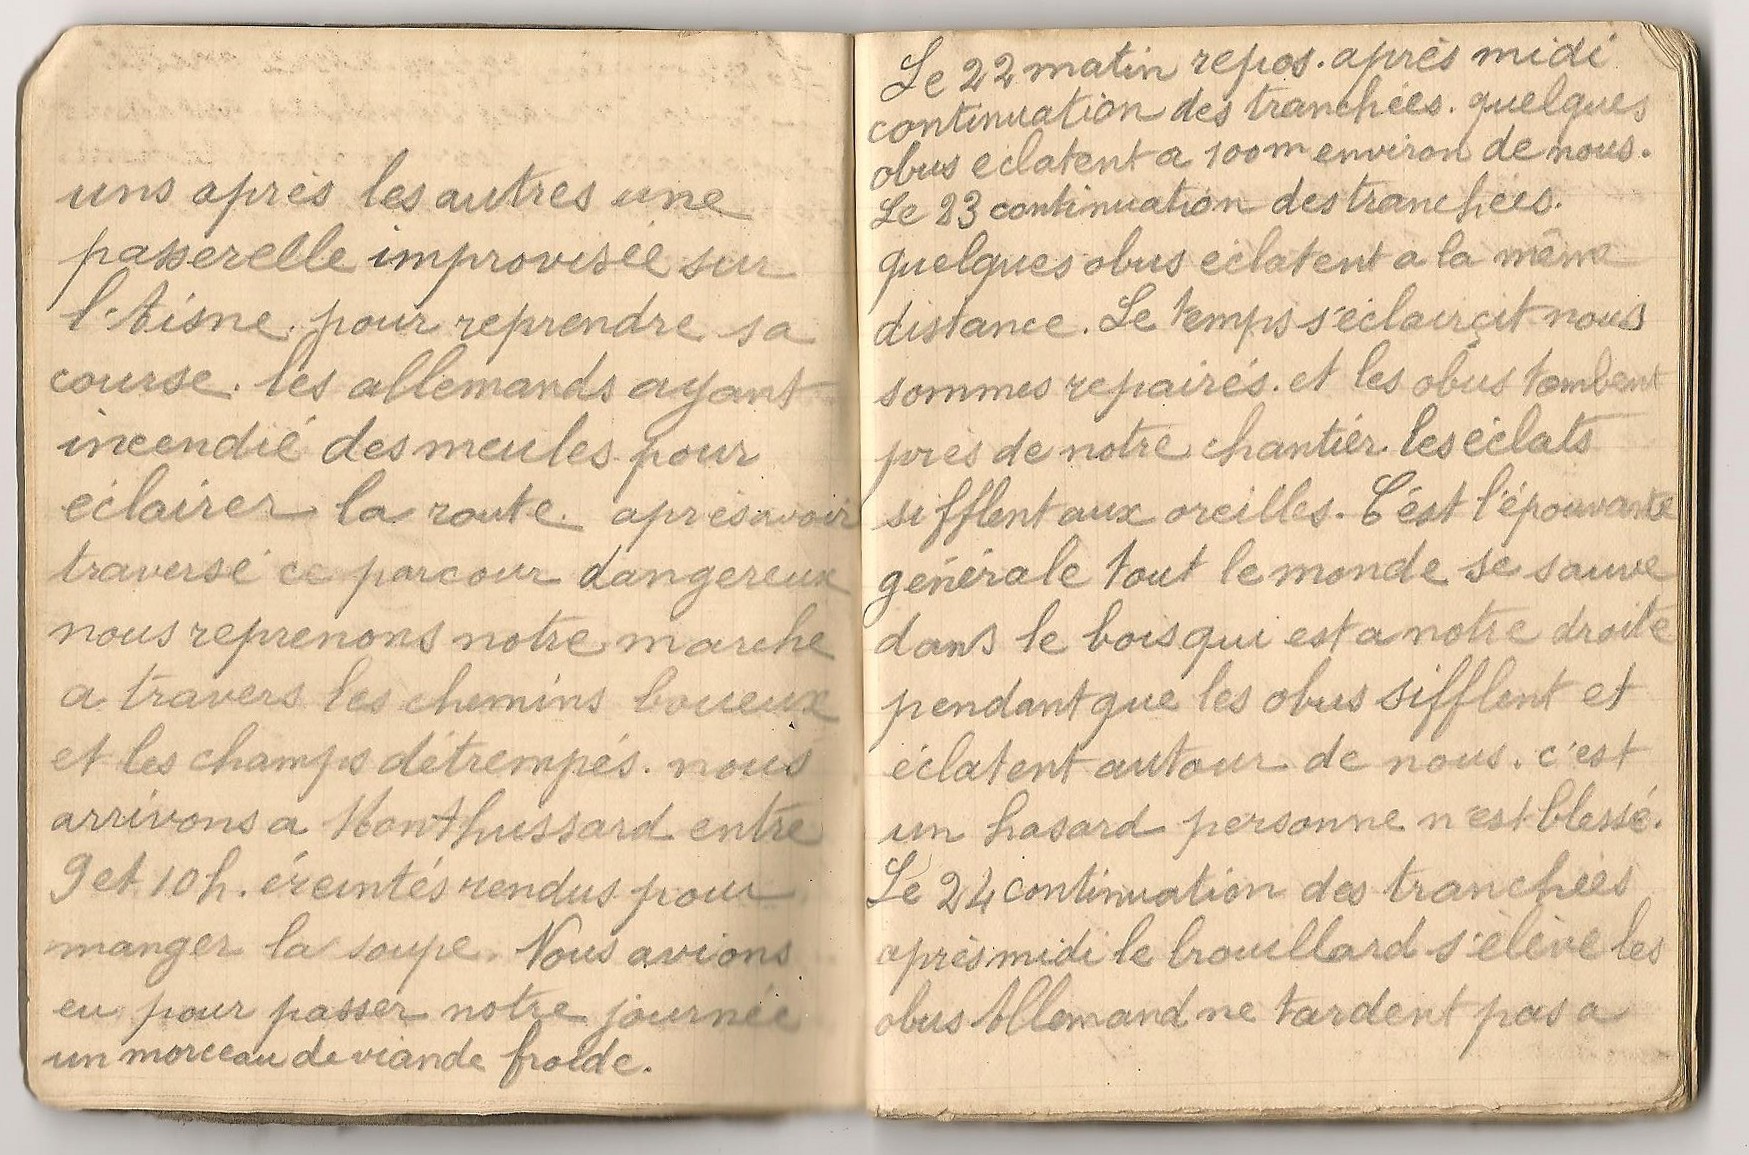 uns après les autres une
passerelle improvisée sur
l'Aisne. pour reprendre sa
course. les allemands ayant
incendié des meules pour
éclairer la route. après avoir
traversé ce parcour dangereux
nous reprenons notre marche
a travers les chemins boueux
et les champs détrempés. nous
arrivons a Monthussard entre
9 et 10 h. éreintés rendus pour
manger la soupe. Nous avions
eu pour passer notre journée
un morceau de viande froide.
Le 22 matin repos. après midi
continuation des tranchées. quelques
obus eclatent a 100m environ de nous.
Le 23 continuation des tranchées.
quelques obus eclatent a la même
distance. Le temps s'éclairçit nous
sommes repairés. et les obus tombent
près de notre chantier. les éclats
sifflent aux oreilles. C'est l'épouvante
générale tout le monde se sauve
dans le bois qui est a notre droite
pendant que les obus sifflent et
éclatent autour de nous. c'est
un hasard personne n'est blessé.
Le 24 continuation des tranchées
après midi le brouillard s'élève les
obus Allemand ne tardent pas a